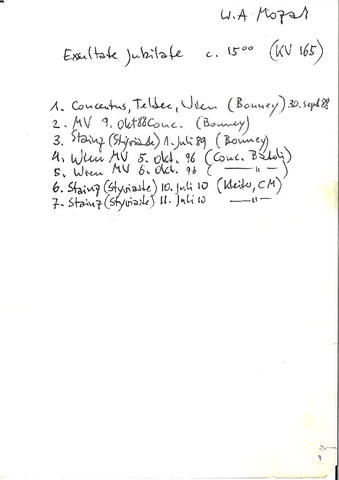 W.A Mozart
Exsultate Jubilate c. 15⁰⁰ (KV 165)
1. Concentus, Teldec, Wien (Bonney) 30. sept 88
2. MV 9. Okt 88 Conc. (Bonney)
3. Stainz (Styriarte) 1. Juli 89 (Bonney)
4. Wien MV 5. Okt. 96 (Conc. Bartoli)
5. Wien MV 6. Okt. 96 (—"—)
6. Stainz (Styriarte) 10. Juli 10 (Kleiter, CM)
7. Stainz (Styriarte) 11. Juli 10 —"—